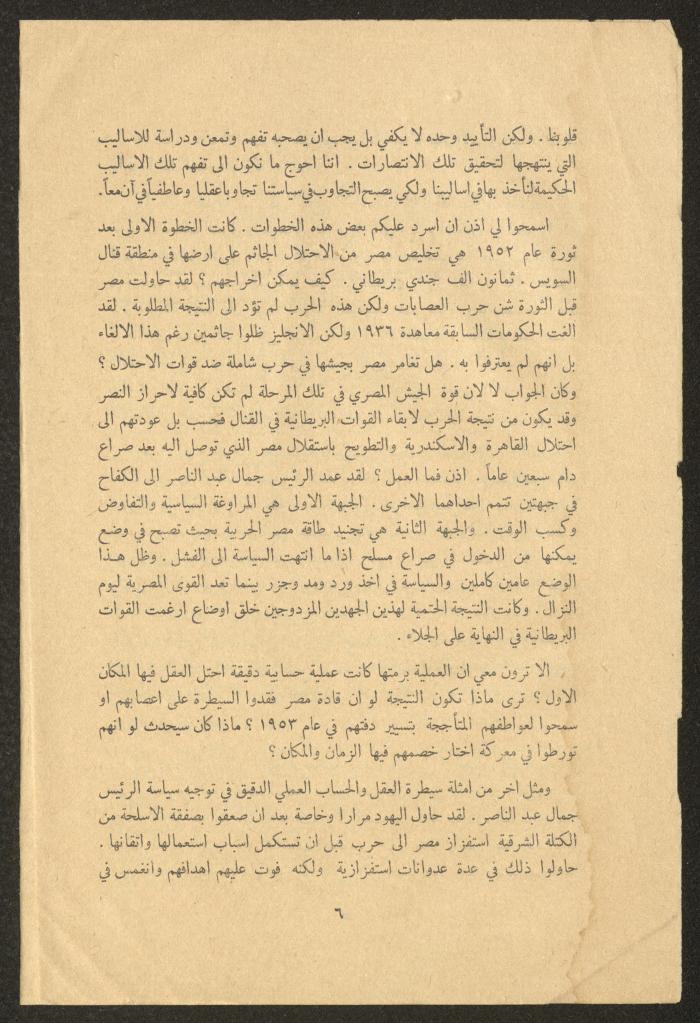 قلوبنا . ولكن التأييد وحده لا يكفي بل يجب ان يصحبه تفهم وتمعن ودراسة للاساليب
التي ينتهجها لتحقيق تلك الانتصارات . اننا احوج ما نكون الى تفهم تلك الاساليب
الحكيمة لنأخذ بها في اساليبنا ولكي يصبح التجاوب في سياستنا تجاوبا عقليا وعاطفياً في آن معاً.
اسمحوا لي اذن ان اسرد عليكم بعض هذه الخطوات . كانت الخطوة الاولى بعد
ثورة عام ١٩٥٢ هي تخليص مصر من الاحتلال الجاثم على ارضها في منطقة قنال
السويس . ثمانون الف جندي بريطاني . كيف يمكن اخراجهم ؟ لقد حاولت مصر
قبل الثورة شن حرب العصابات ولكن هذه الحرب لم تؤد الى النتيجة المطلوبة . لقد
الغت الحكومات السابقة معاهدة ١٩٣٦ ولكن الانجليز ظلوا جاثمين رغم هذا الالغاء
بل انهم لم يعترفوا به . هل تغامر مصر بجيشها في حرب شاملة ضد قوات الاحتلال ؟
وكان الجواب لا لان قوة الجيش المصري في تلك المرحلة لم تكن كافية لاحراز النصر
وقد يكون من نتيجة الحرب لابقاء القوات البريطانية في القنال فحسب بل عودتهم الى
احتلال القاهرة والاسكندرية والتطويح باستقلال مصر الذي توصل اليه بعد صراع
دام سبعين عاماً . اذن فما العمل ؟ لقد عمد الرئيس جمال عبد الناصر الى الكفاح
في جبهتين تتمم احداهما الاخرى . الجبهة الاولى هي المراوغة السياسية والتفاوض
وكسب الوقت . والجبهة الثانية هي تجنيد طاقة مصر الحربية بحيث تصبح في وضع
يمكنها من الدخول في صراع مسلح اذا ما انتهت السياسة الى الفشل . وظل هـذا
الوضع عامين كاملين والسياسة في اخذ ورد ومد وجزر بينما تعد القوى المصرية ليوم
النزال . وكانت النتيجة الحتمية لهذين الجهدين المزدوجين خلق اوضاع ارغمت القوات
البريطانية في النهاية على الجلاء .
الا ترون معي ان العملية برمتها كانت عملية حسابية دقيقة احتل العقل فيها المكان
الاول ؟ ترى ماذا تكون النتيجة لو ان قادة مصر فقدوا السيطرة على اعصابهم او
سمحوا لعواطفهم المتأججة بتسيير دفتهم في عام ١٩٥٣ ؟ ماذا كان سيحدث لو انهم
تورطوا في معركة اختار خصمهم فيها الزمان والمكان ؟
ومثل اخر من امثلة سيطرة العقل والحساب العملي الدقيق في توجيه سياسة الرئيس
جمال عبد الناصر . لقد حاول اليهود مرارا وخاصة بعد ان صعقوا بصفقة الاسلحة من
الكتلة الشرقية استفزاز مصر الى حرب قبل ان تستكمل اسباب استعمالها واتقانها .
حاولوا ذلك في عدة عدوانات استفزازية ولكنه فوت عليهم اهدافهم وانغمس في
٦